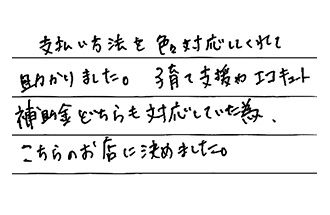 支払い方法を色々対応してくれて
助かりました。子育て支援やエコキュート
補助金どちらも対応していた為、
こちらのお店に決めました。